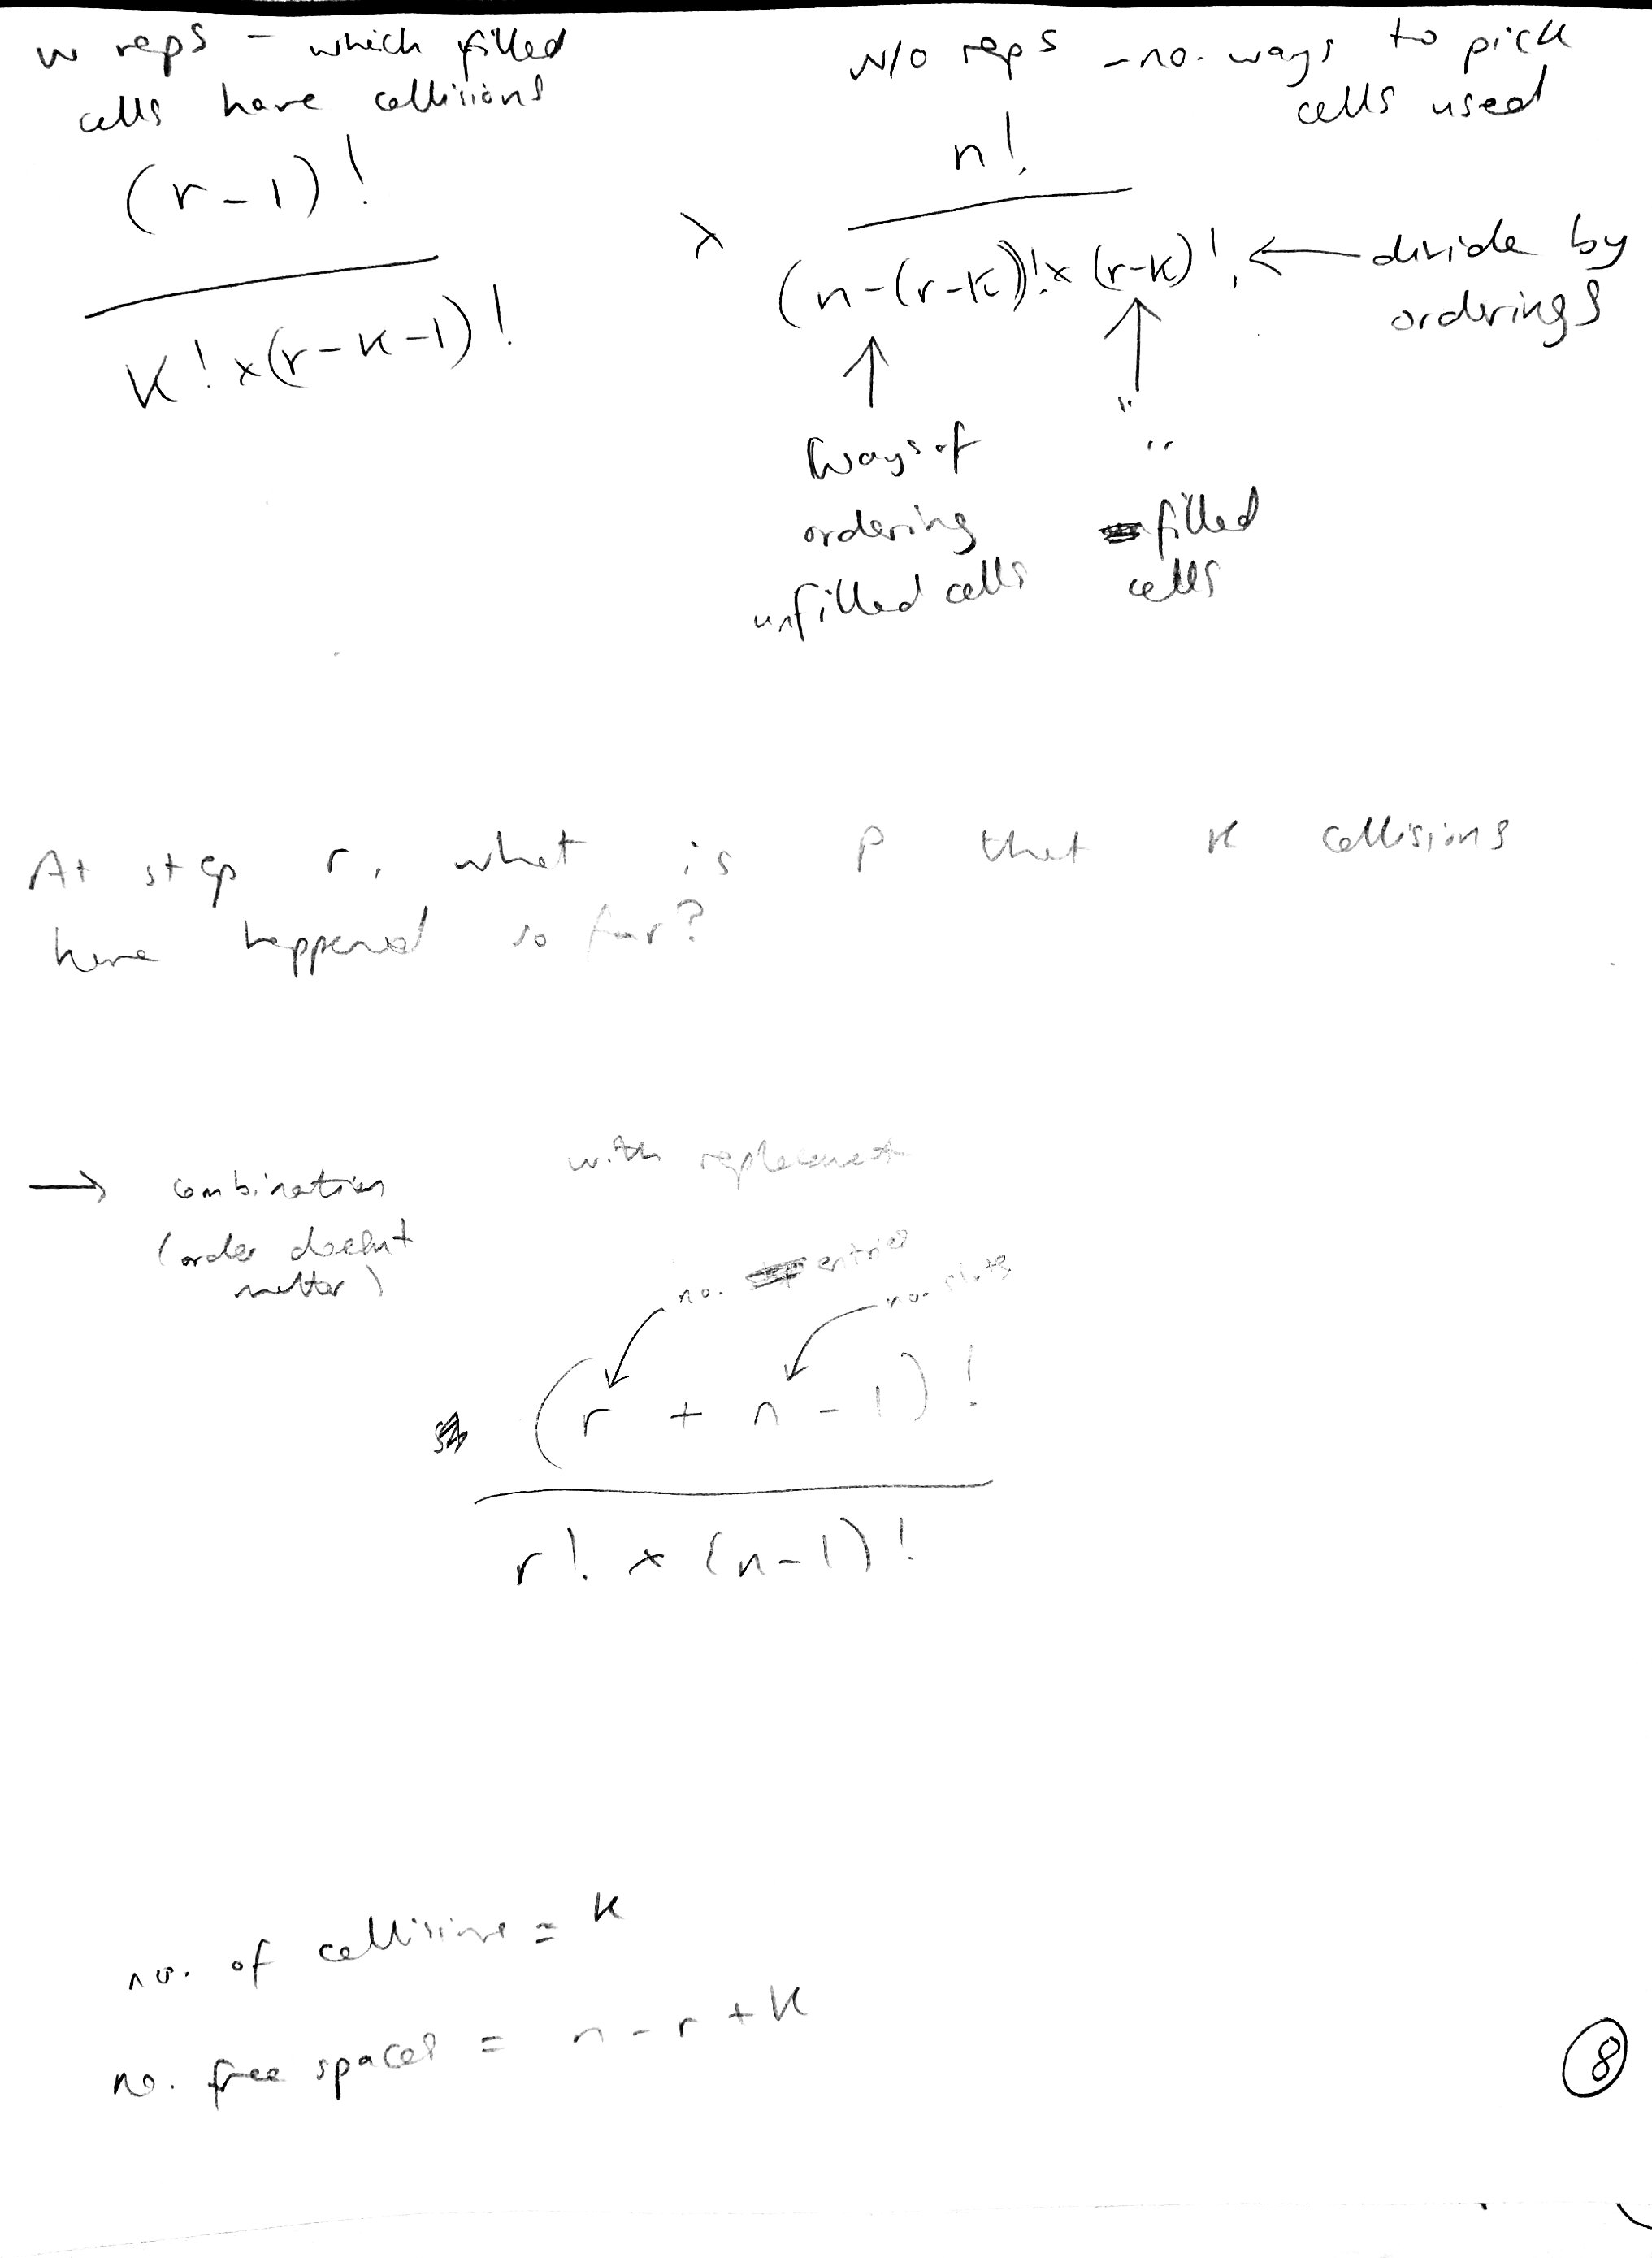 w reps - which filled
cells have collisions
(r-1)!
K! x (r-K-1)!
x
w/o reps - no. ways to pick
cells used
n!
(n-(r-K))! x (r-K)! ← divide by
orderings
↑
Ways of
ordering
unfilled cells
↑
" "
filled
cells
At step r, what is P that K collisions
have happened so far?
→ combination with replacement
(order doesn't
matter)
no. entries
no. slots
(r + n - 1)!
r! x (n-1)!
no. of collisions = K
no. free spaces = n - r + K
8